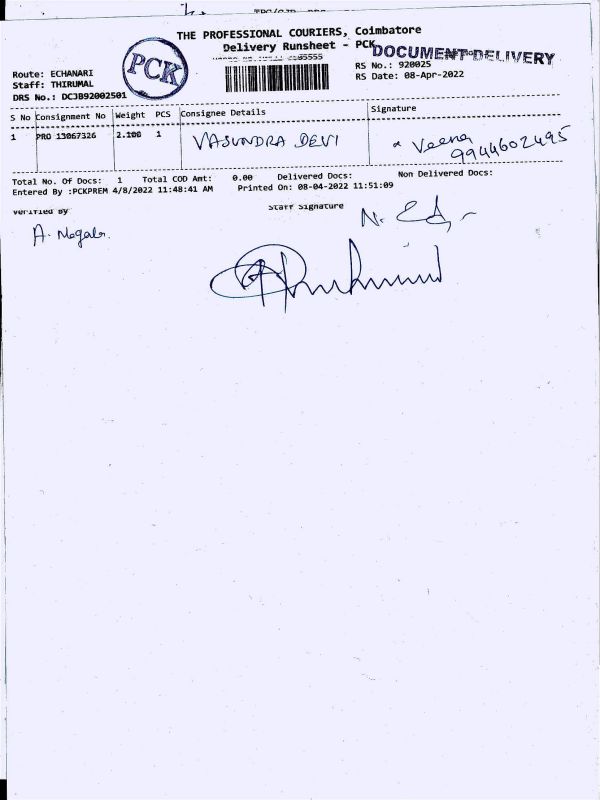 THE PROFESSIONAL COURIERS, Coimbatore
Delivery Runsheet - PCK
DOCUMENT DELIVERY
PCK
Route: ECHANARI
Staff: THIRUMAL
DRS No.: DCJB92002501
RS No.: 920025
RS Date: 08-Apr-2022
S No Consignment No Weight PCS Consignee Details Signature
1 PRO 13067326 2.100 1 VASUNDRA DEVI Veena
9944602495
Total No. Of Docs: 1 Total COD Amt: 0.00 Delivered Docs: Non Delivered Docs:
Entered By :PCKPREM 4/8/2022 11:48:41 AM Printed On: 08-04-2022 11:51:09
Verified By Staff Signature